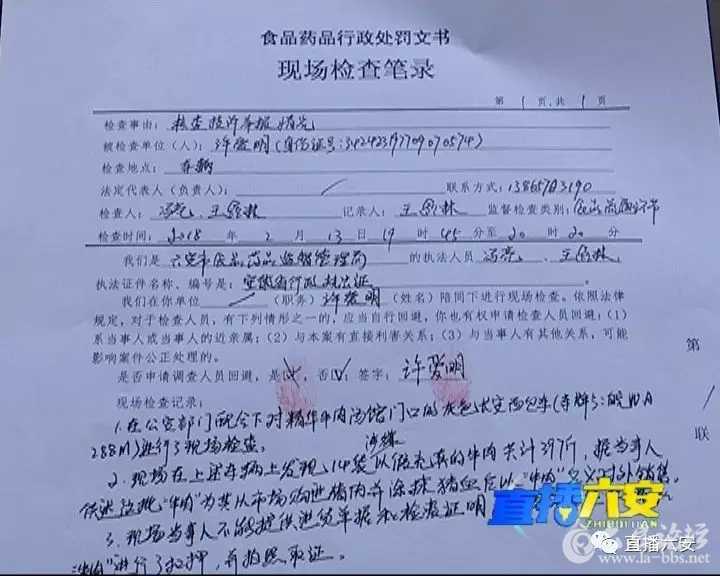 食品药品行政处罚文书
现场检查笔录
第 1 页,共 1 页
检查事由: 核查投诉举报情况
被检查单位(人): 许爱明(身份证号:
检查地点: 车辆
法定代表人(负责人): / 联系方式:
检查人: 冯亮、王 林 记录人: 王 林 监督检查类别: 食品流通环节
检查时间: 2018 年 2 月 13 日 19 时 45 分至 20 时 20 分
我们是 六安市食品药品监督管理局 的执法人员 冯亮、王 林
执法证件名称、编号是: 安徽省行政执法证
我们在你单位 / (职务) 许爱明 (姓名) 陪同下进行现场检查。依照法律
规定,对于检查人员,有下列情形之一的,应当自行回避,你也有权申请检查人员回避:(1)
系当事人或当事人的近亲属;(2)与本案有直接利害关系;(3)与当事人有其他关系,可能
影响案件公正处理的。
是否申请调查人员回避,是 ,否☑; 签字: 许爱明
现场检查记录:
1.在公安部门配合下对精华牛肉汤馆门口的灰色长安面包车(车牌号:皖NA
288M)进行了现场检查。
涉嫌
2.现场在上述车辆上发现14袋以假充真的牛肉共计397斤,据当事人
供述这批"牛肉"为其从市场购进猪肉并涂抹猪血后以"牛肉"名义对外销售
3.现场当事人不能提供进货单据和检疫证明
"牛肉"进行了扣押,并拍照取证。
第
/
联
直播六安
ZHIBOLIUAN
直播六安
www.la-bbs.net